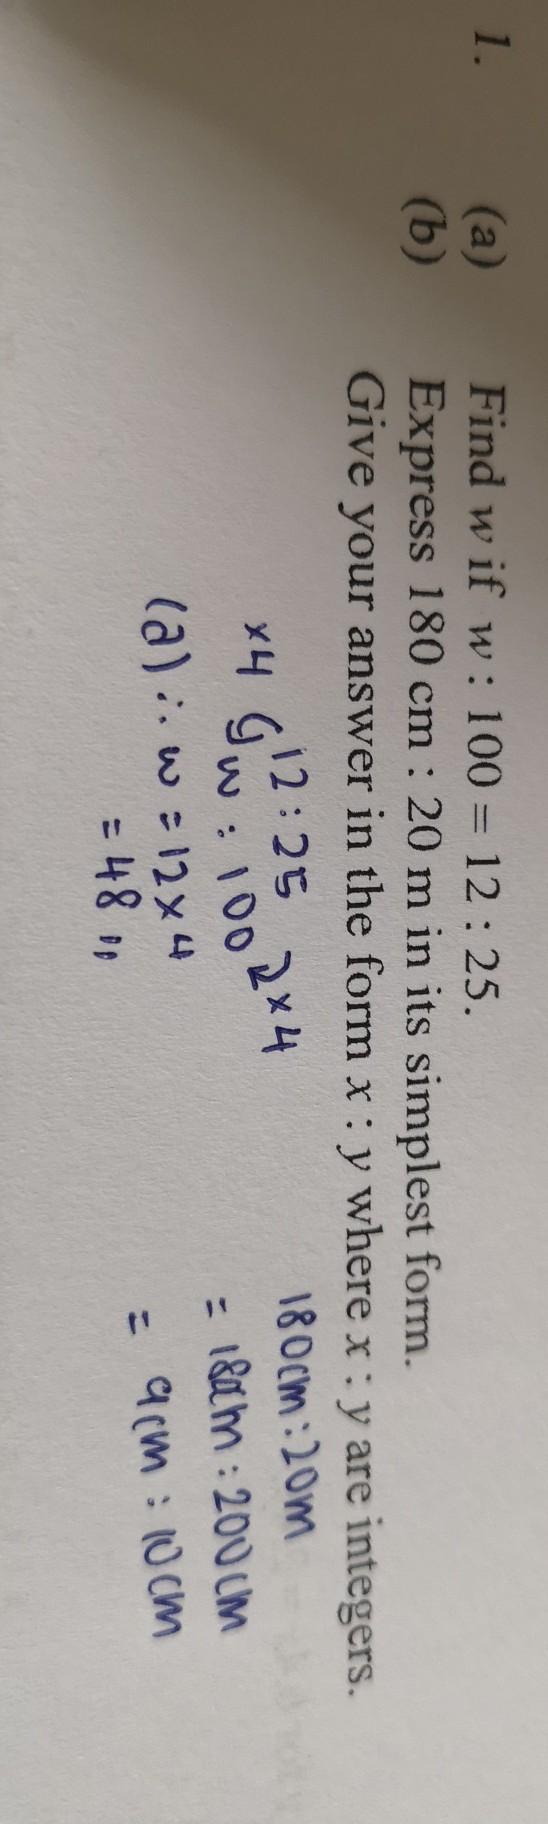 1. (a) Find w if w : 100 = 12 : 25.
(b) Express 180 cm : 20 m in its simplest form.
Give your answer in the form x : y where x : y are integers.
12 : 25
×4 w : 100 ×4
(a) ∴ w = 12 × 4
= 48 "
180cm : 20m
= 180cm : 200cm
= 9cm : 10cm